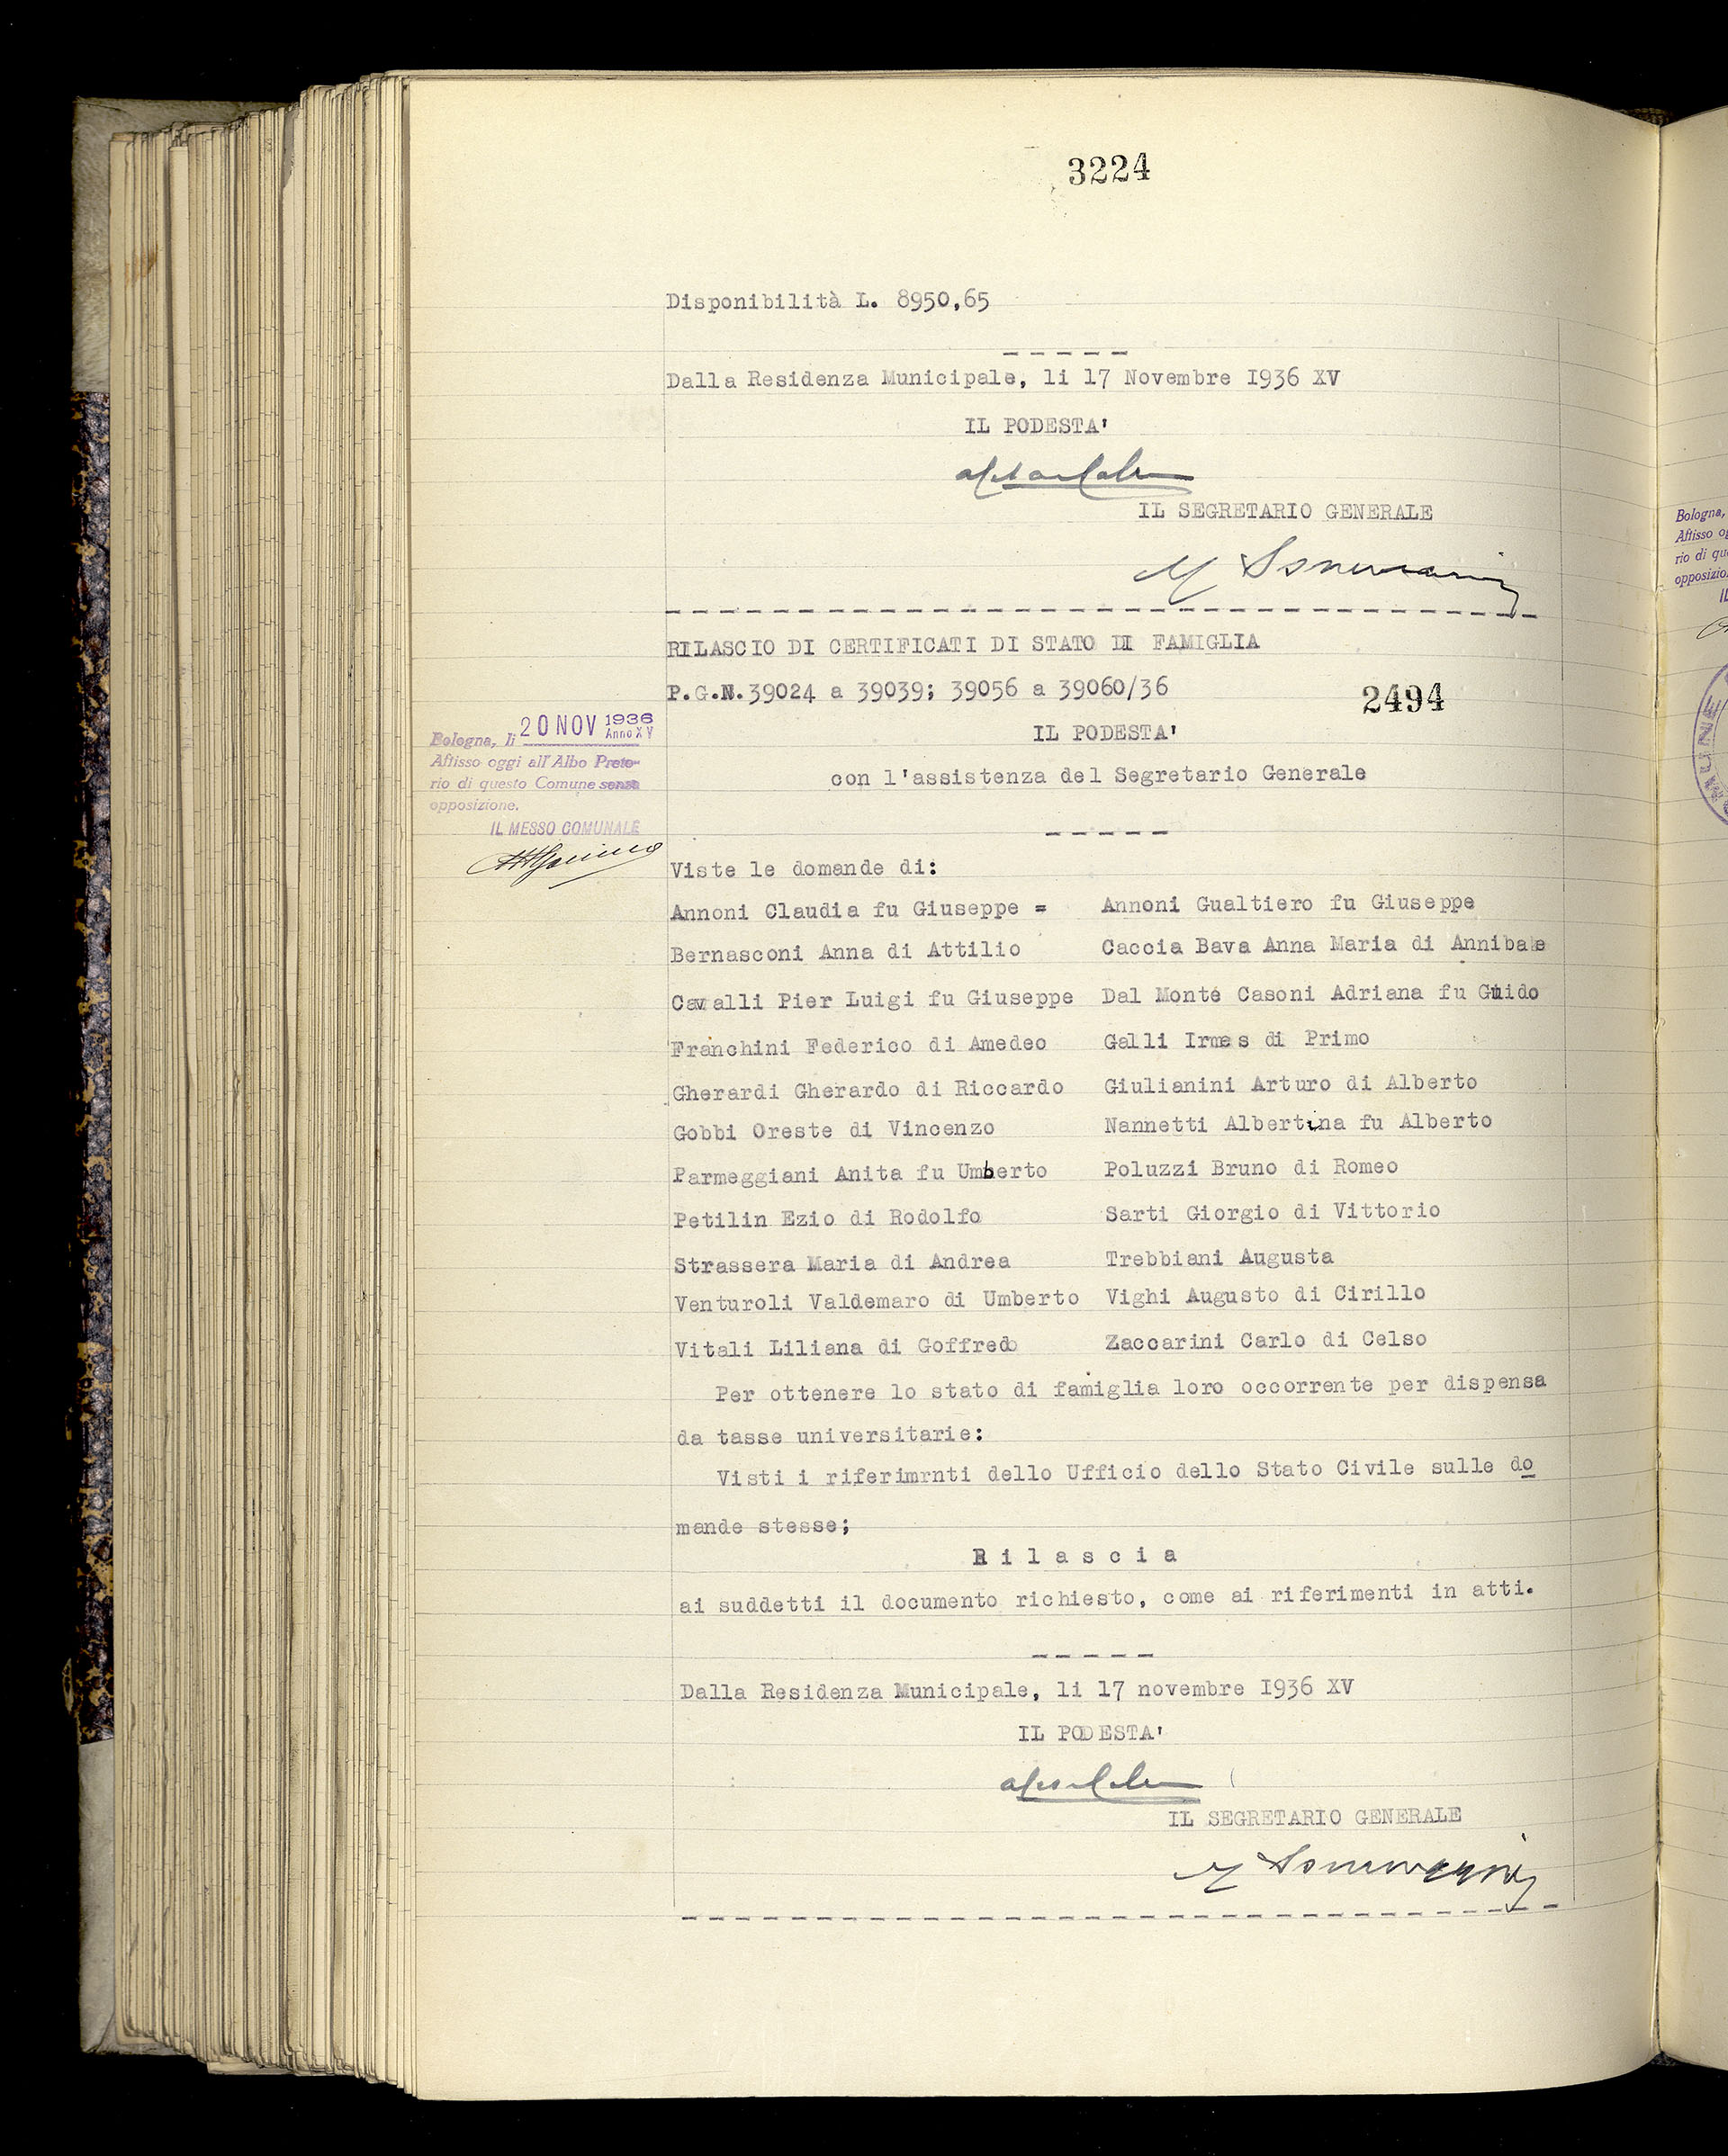 3224
Disponibilità L. 8950,65
Dalla Residenza Municipale, li 17 Novembre 1936 XV
IL PODESTA'
IL SEGRETARIO GENERALE
RILASCIO DI CERTIFICATI DI STATO DI FAMIGLIA
P.G.N.39024 a 39039; 39056 a 39060/36
2494
IL PODESTA'
con l'assistenza del Segretario Generale
Bologna, li 20 NOV 1936 Anno XV
Affisso oggi all'Albo Preto-
rio di questo Comune senza
opposizione.
IL MESSO COMUNALE
Viste le domande di:
Annoni Claudia fu Giuseppe = Annoni Gualtiero fu Giuseppe
Bernasconi Anna di Attilio Caccia Bava Anna Maria di Annibale
Cavalli Pier Luigi fu Giuseppe Dal Monte Casoni Adriana fu Guido
Franchini Federico di Amedeo Galli Irmes di Primo
Gherardi Gherardo di Riccardo Giulianini Arturo di Alberto
Gobbi Oreste di Vincenzo Nannetti Albertina fu Alberto
Parmeggiani Anita fu Umberto Poluzzi Bruno di Romeo
Petilin Ezio di Rodolfo Sarti Giorgio di Vittorio
Strassera Maria di Andrea Trebbiani Augusta
Venturoli Valdemaro di Umberto Vighi Augusto di Cirillo
Vitali Liliana di Goffredo Zaccarini Carlo di Celso
Per ottenere lo stato di famiglia loro occorrente per dispensa
da tasse universitarie:
Visti i riferimrnti dello Ufficio dello Stato Civile sulle do
mande stesse;
Rilascia
ai suddetti il documento richiesto, come ai riferimenti in atti.
Dalla Residenza Municipale, li 17 novembre 1936 XV
IL PODESTA'
IL SEGRETARIO GENERALE
Bologna,
Affisso og
rio di qu
opposizio